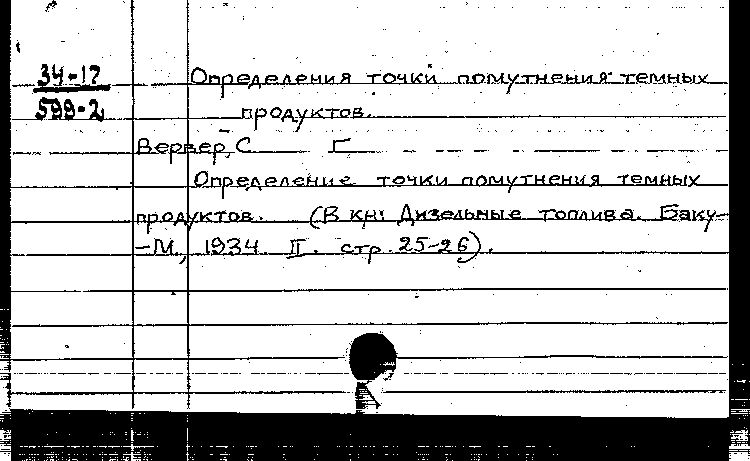 34-17 Определения точки помутнения темных
599-2 продуктов.
Вервер, С Г
Определение точки помутнения темных
продуктов. (В кн: Дизельные топлива. Баку-
-М., 1934 II. стр. 25-26).